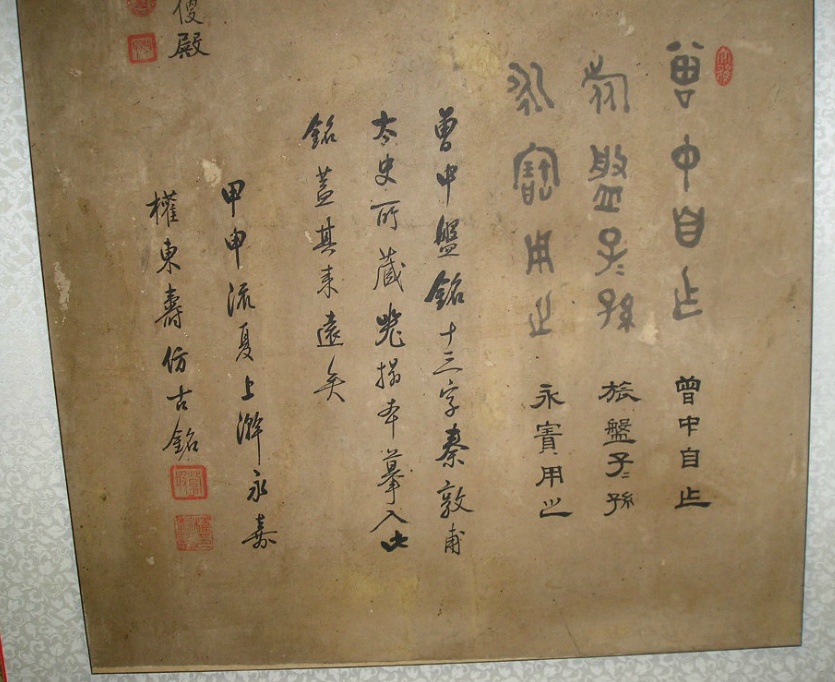 曾中自止
旅盤子〻孫
永寶用之
曾中自止
旅盤子〻孫
永寳用之
曾中盤銘十三字秦敦甫
太史所藏搨本摹入此
銘蓋其来遠矣
甲申流夏上澣永嘉
權東壽仿古銘
殿